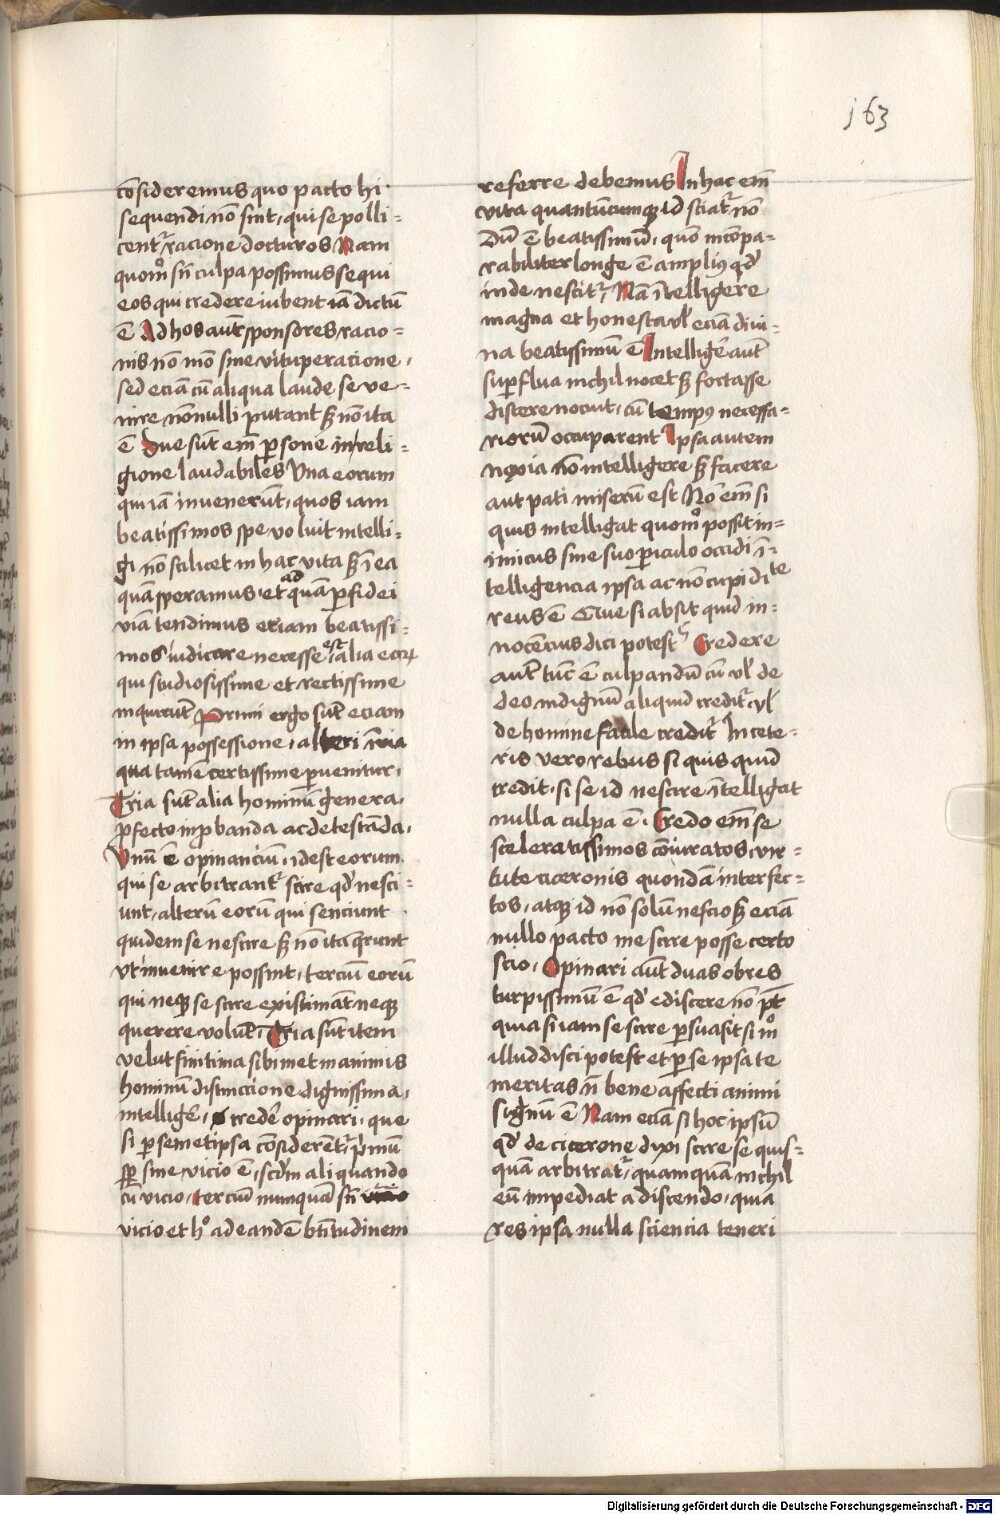 163
cōsideremus quo pacto hi
sequendi nō sint, qui se polli-
cent᷑ racione docturos Nam
quomo͛ sn̄ culpa possimus sequi
eos qui credere iubent iā dictū
ē Ad hos aut̄ sponsores racio-
nis nō mō sine vituperacione,
sed eciā cū aliqua laude se ve-
nire nōnulli putant sꝫ nō ita
ē Due sūt em̄ ꝑsone in reli-
gione laudabiles Vna eorum
qui iā invenerūt, quos iam
beatissimos spe voluit intelli-
gi nō scilicet in hac vita sꝫ ī ea
quā speramus, et ad quā ꝑ fidei
viā tendimus etiam beatissi-
mos iudicare necesse est alia eoꝝ
qui studiosissime et rectissime
inquirūt Primi ergo sūt eciam
in ipsa possessione, alteri ī via
qua tamē certissime ꝑvenitur,
Tria sūt alia hominū genera,
ꝓfecto inꝓbanda ac detestāda,
Vnū ē opinanciū, idest eorum
qui se arbitrant᷑ scire qd̄ nesci-
unt, alterū eorū qui senciunt
quidem se nescire sꝫ nō ita q̄runt
vt invenire possint, terciū eorū
qui neqꝫ se scire existimāt neqꝫ
querere volūt, Tria sūt item
velut finitima sibimet in animis
hominū distinccione dignissima,
intelligē, credē opinari, que
si ꝑ semetipsa cōsiderēt᷑ p̄mū
sꝑ sine vicio ē, scd̄m aliquando
cū vicio, terciū numquā sn̄
vicio et h° ad eandē bt̄itudinem
referre debemus In hac em̄
vita quantūcumqꝫ id sciat᷑ nō
dū ē beatissimū, quō incōpa-
rabiliter longe ē ampliꝯ qd̄
inde nescit᷑, Nā ītelligere
magna et honesta vl̄ eciā divi-
na beatissimū ē Intelligē aut̄
suꝑflua nichil nocet sꝫ fortasse
discere nocuit, cū tempꝯ necessa-
riorū occuparent Ipsa autem
noxia nō intelligere sꝫ facere
aut pati miserū est No͛ em̄ si
quis intelligat quomo͛ possit in-
imicus sine suo ꝑiculo occidi ī-
telligencia ipsa ac nō cupidite
reus ē Que si absit quid in-
nocēcius dici potest Credere
aut̄ tūc ē culpandū cū vl̄ de
deo indignū aliquid credit᷑, vl̄
de homine facile credit᷑ In cete-
ris vero rebus si quis quid
credit, si se id nescire ītelligat
nulla culpa ē, Credo em̄ se
sceleratissimos cōiuratos vir-
tute ciceronis quondā interfec-
tos, atqꝫ id nō solū nescio sꝫ eciā
nullo pacto me scire posse certo
scio, Opinari aut̄ duas ob res
turpissimū ē qd̄ ediscere nō pt̄
quia si iam se scire ꝑsuasit si mo͛
illud disci potest et ꝑ se ipsa te
meritas n̄ bene affecti animi
signū ē Nam eciā si hoc ipsū
qd̄ de cicerone dixi scire se quis-
quā arbitrat᷑, quamquā nichil
eū impediat a discendo, quia
res ipsa nulla sciencia teneri
Digitalisierung gefördert durch die Deutsche Forschungsgemeinschaft - DFG